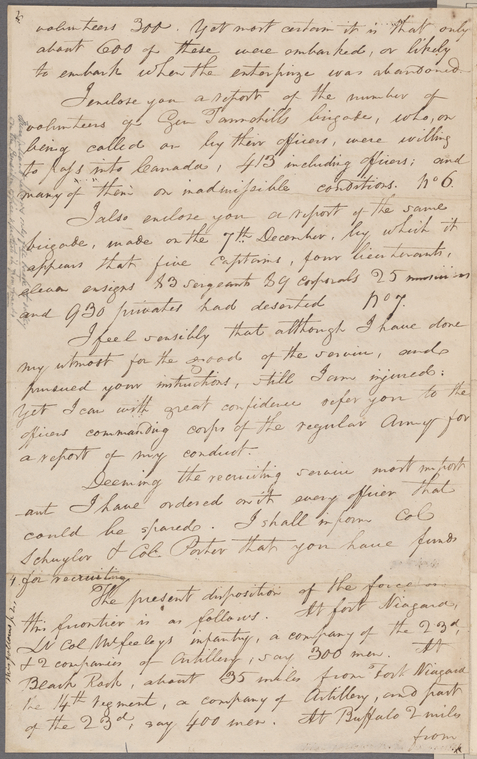 volunteers 300. Yet most certain it is that only
about 600 of these were embarked, or likely
to embark when the enterprize was abandoned.
I enclose you a report of the number of
volunteers of Gen Tannehills brigade, who, on
being called on by their officers, were willing
to pass into Canada, 413 including officers; and
many of them on inadmissible conditions. No 6.
I also enclose you a report of the same
brigade, made on the 7th December, by which it
appears that five Captains, four lieutenants,
eleven ensigns 83 sergeants 59 corporals 25 musicians
and 930 privates had deserted No 7.
I feel sensibly that although I have done
my utmost for the good of the service, and
pursued your instructions, still I am injured:
Yet I can with great confidence refer you to the
officers commanding corps of the regular Army for
a report of my conduct.
Deeming the recruiting service most import
ant I have ordered on it every officer that
could be spared. I shall inform Col
Schuyler & Col. Porter that you have funds
for recruiting
The present disposition of the force on
this frontier is as follows. At fort Niagara,
Lt Col McFeeleys infantry, a company of the 23d,
& 2 companies of Artillery, say 300 men. At
Black Rock, about 35 miles from Fort Niagara
the 14th regiment, a company of Artillery, and part
of the 23d, say 400 men. At Buffalo 2 miles
from